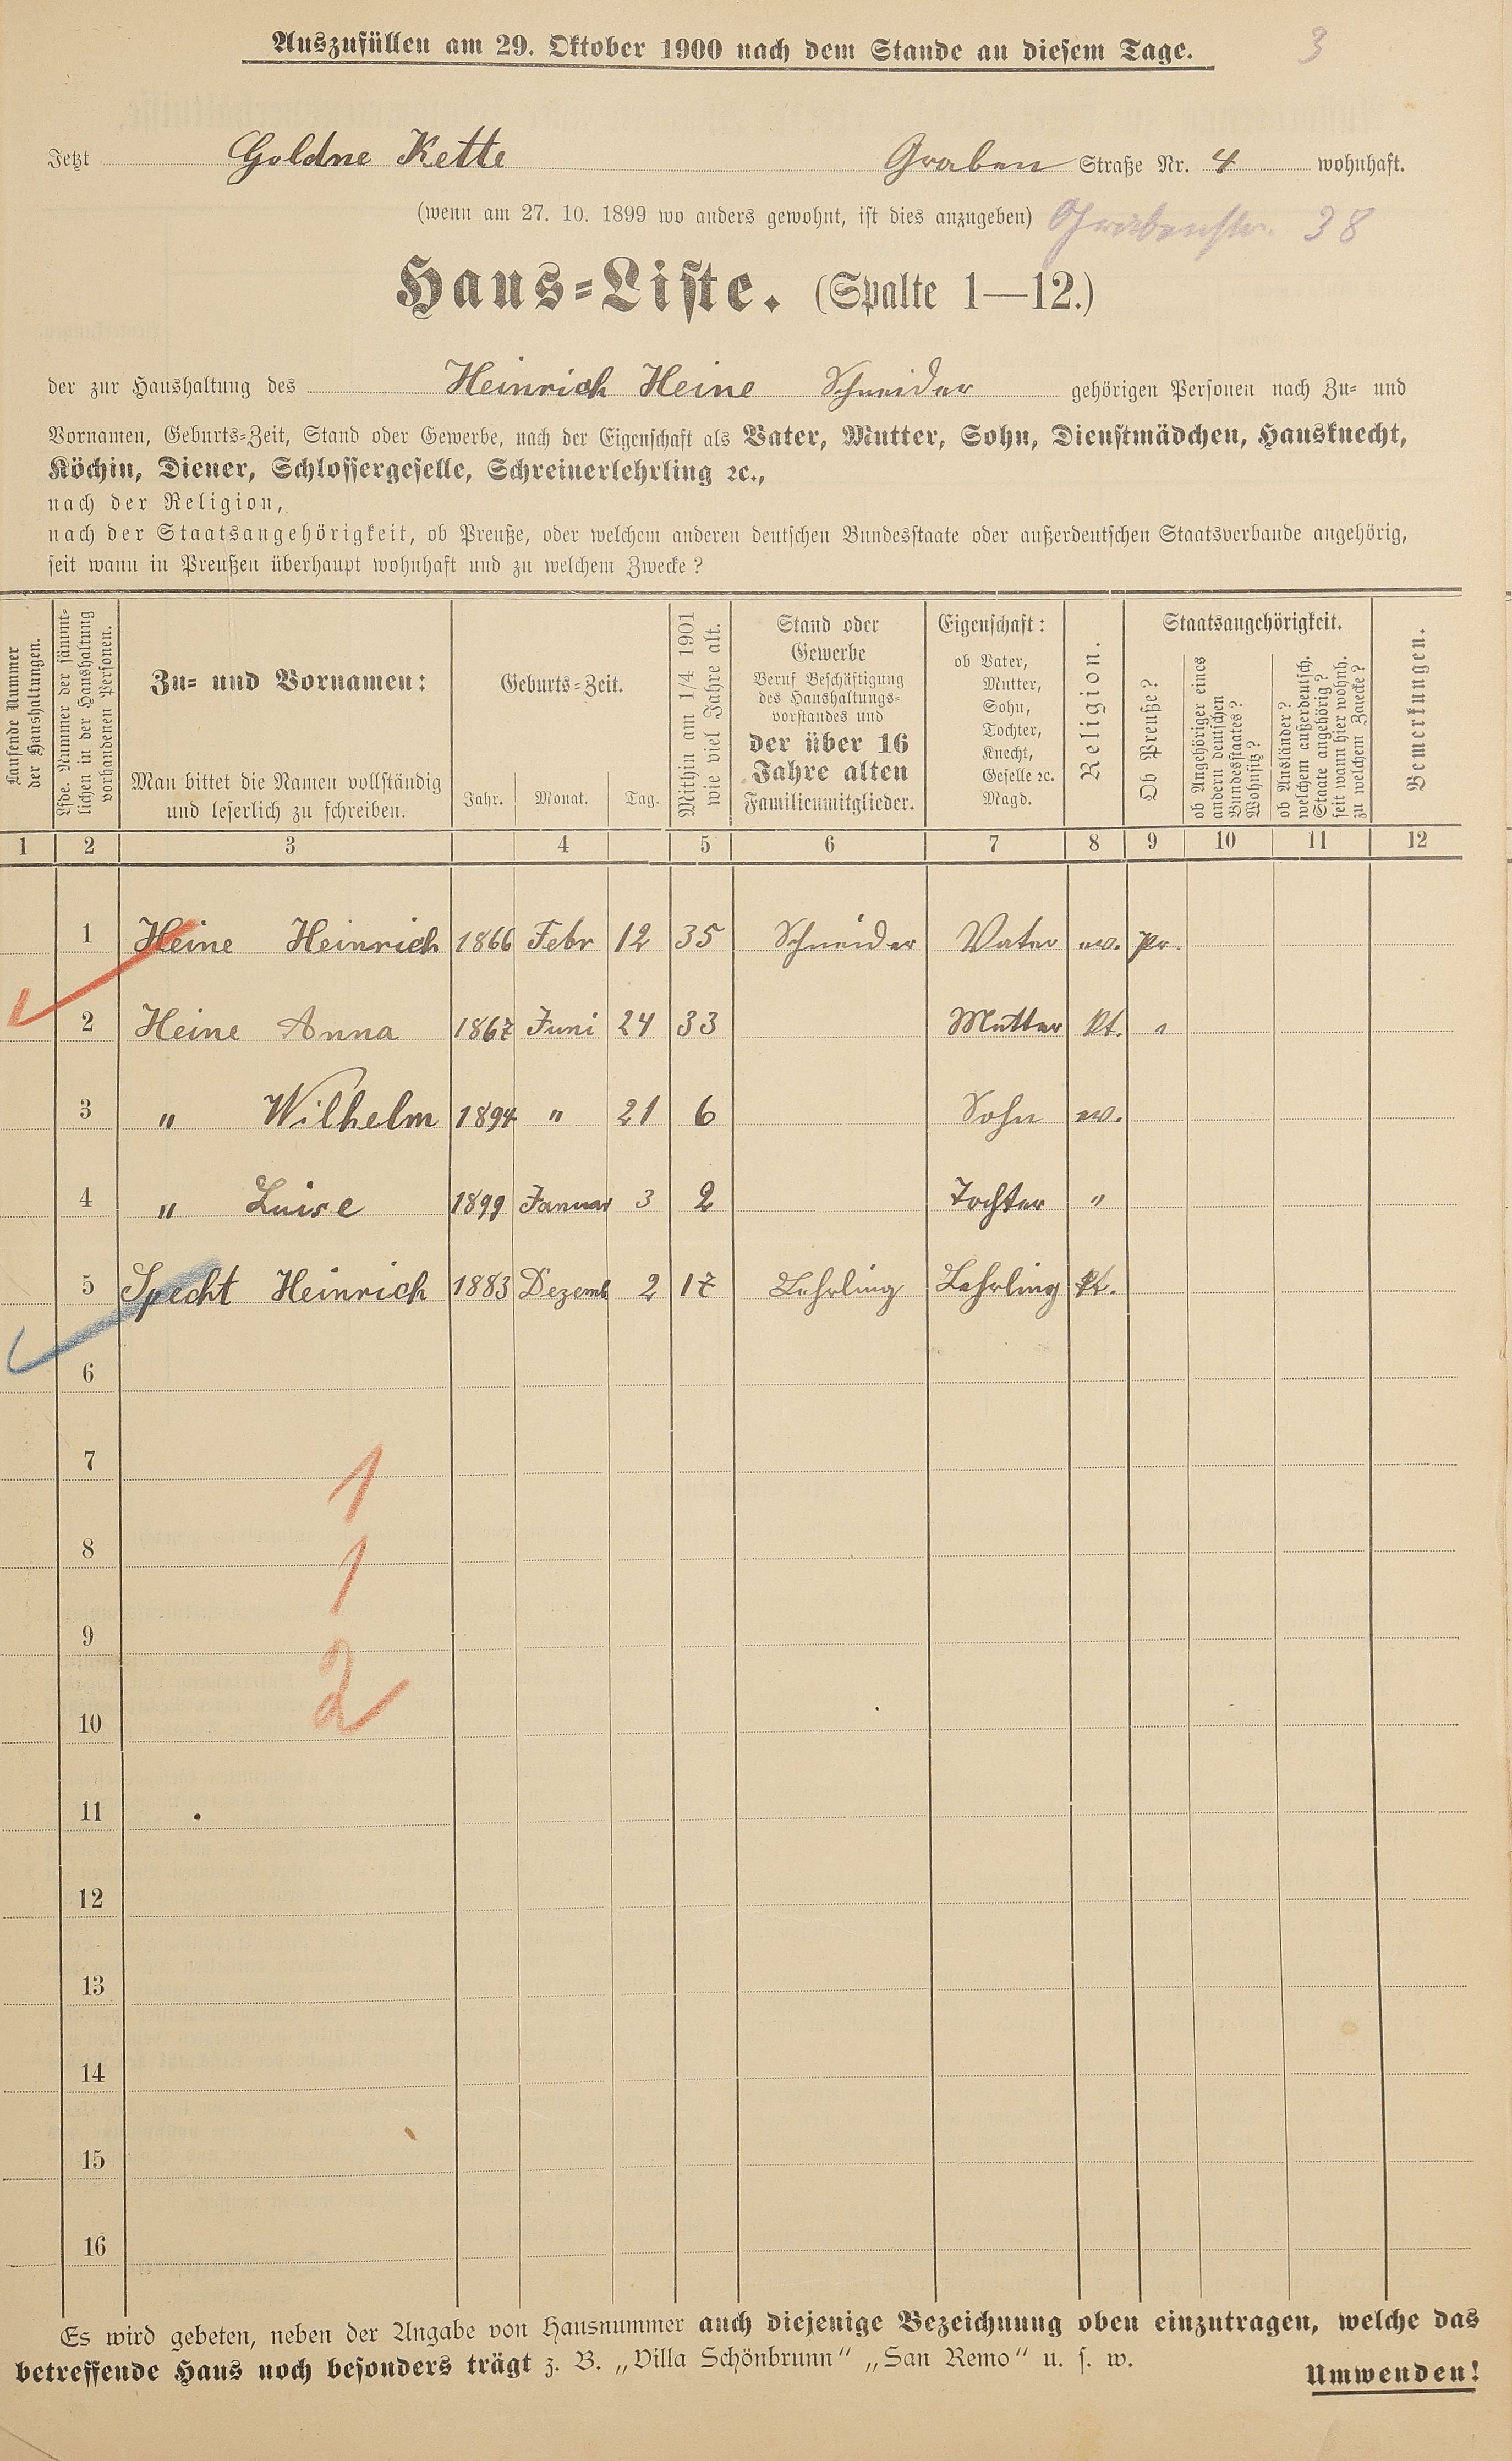 Auszufüllen am 29. Oktober 1900 nach dem Stande an diesem Tage.
3
Jetzt Goldne Kette Graben Straße Nr. 4 wohnhaft.
(wenn am 27. 10. 1899 wo anders gewohnt, ist dies anzugeben) Grabenstr. 38
Haus-Liste. (Spalte 1—12.)
der zur Haushaltung des Heinrich Heine Schneider gehörigen Personen nach Zu- und
Vornamen, Geburts-Zeit, Stand oder Gewerbe, nach der Eigenschaft als Vater, Mutter, Sohn, Dienstmädchen, Hausknecht,
Köchin, Diener, Schlossergeselle, Schreinerlehrling ꝛc.,
nach der Religion,
nach der Staatsangehörigkeit, ob Preuße, oder welchem anderen deutschen Bundesstaate oder außerdeutschen Staatsverbande angehörig,
seit wann in Preußen überhaupt wohnhaft und zu welchem Zwecke?
Laufende Nummer
der Haushaltungen.
Lfde. Nummer der sämmt-
lichen in der Haushaltung
vorhandenen Personen.
Zu- und Vornamen:
Man bittet die Namen vollständig
und leserlich zu schreiben.
Geburts-Zeit.
Jahr. Monat. Tag.
Mithin am 1/4 1901
wie viel Jahre alt.
Stand oder
Gewerbe
Beruf Beschäftigung
des Haushaltungs-
vorstandes und
der über 16
Jahre alten
Familienmitglieder.
Eigenschaft:
ob Vater,
Mutter,
Sohn,
Tochter,
Knecht,
Geselle ꝛc.
Magd.
Religion.
Staatsangehörigkeit.
Ob Preuße?
ob Angehöriger eines
andern deutschen
Bundesstaates?
Wohnsitz?
ob Ausländer?
welchem außerdeutsch.
Staate angehörig?
seit wann hier wohnh.
zu welchem Zwecke?
Bemerkungen.
1 2 3 4 5 6 7 8 9 10 11 12
1 Heine Heinrich 1866 Febr 12 35 Schneider Vater ev. Pr.
2 Heine Anna 1867 Juni 24 33 Mutter kt. "
3 " Wilhelm 1894 " 21 6 Sohn ev.
4 " Luise 1899 Januar 3 2 Tochter "
5 Specht Heinrich 1883 Dezemb 2 17 Lehrling Lehrling kt.
6
7
1
8
1
9
2
10
11
12
13
14
15
16
Es wird gebeten, neben der Angabe von Hausnummer auch diejenige Bezeichnung oben einzutragen, welche das
betreffende Haus noch besonders trägt z. B. „Villa Schönbrunn“ „San Remo“ u. s. w.
Umwenden!